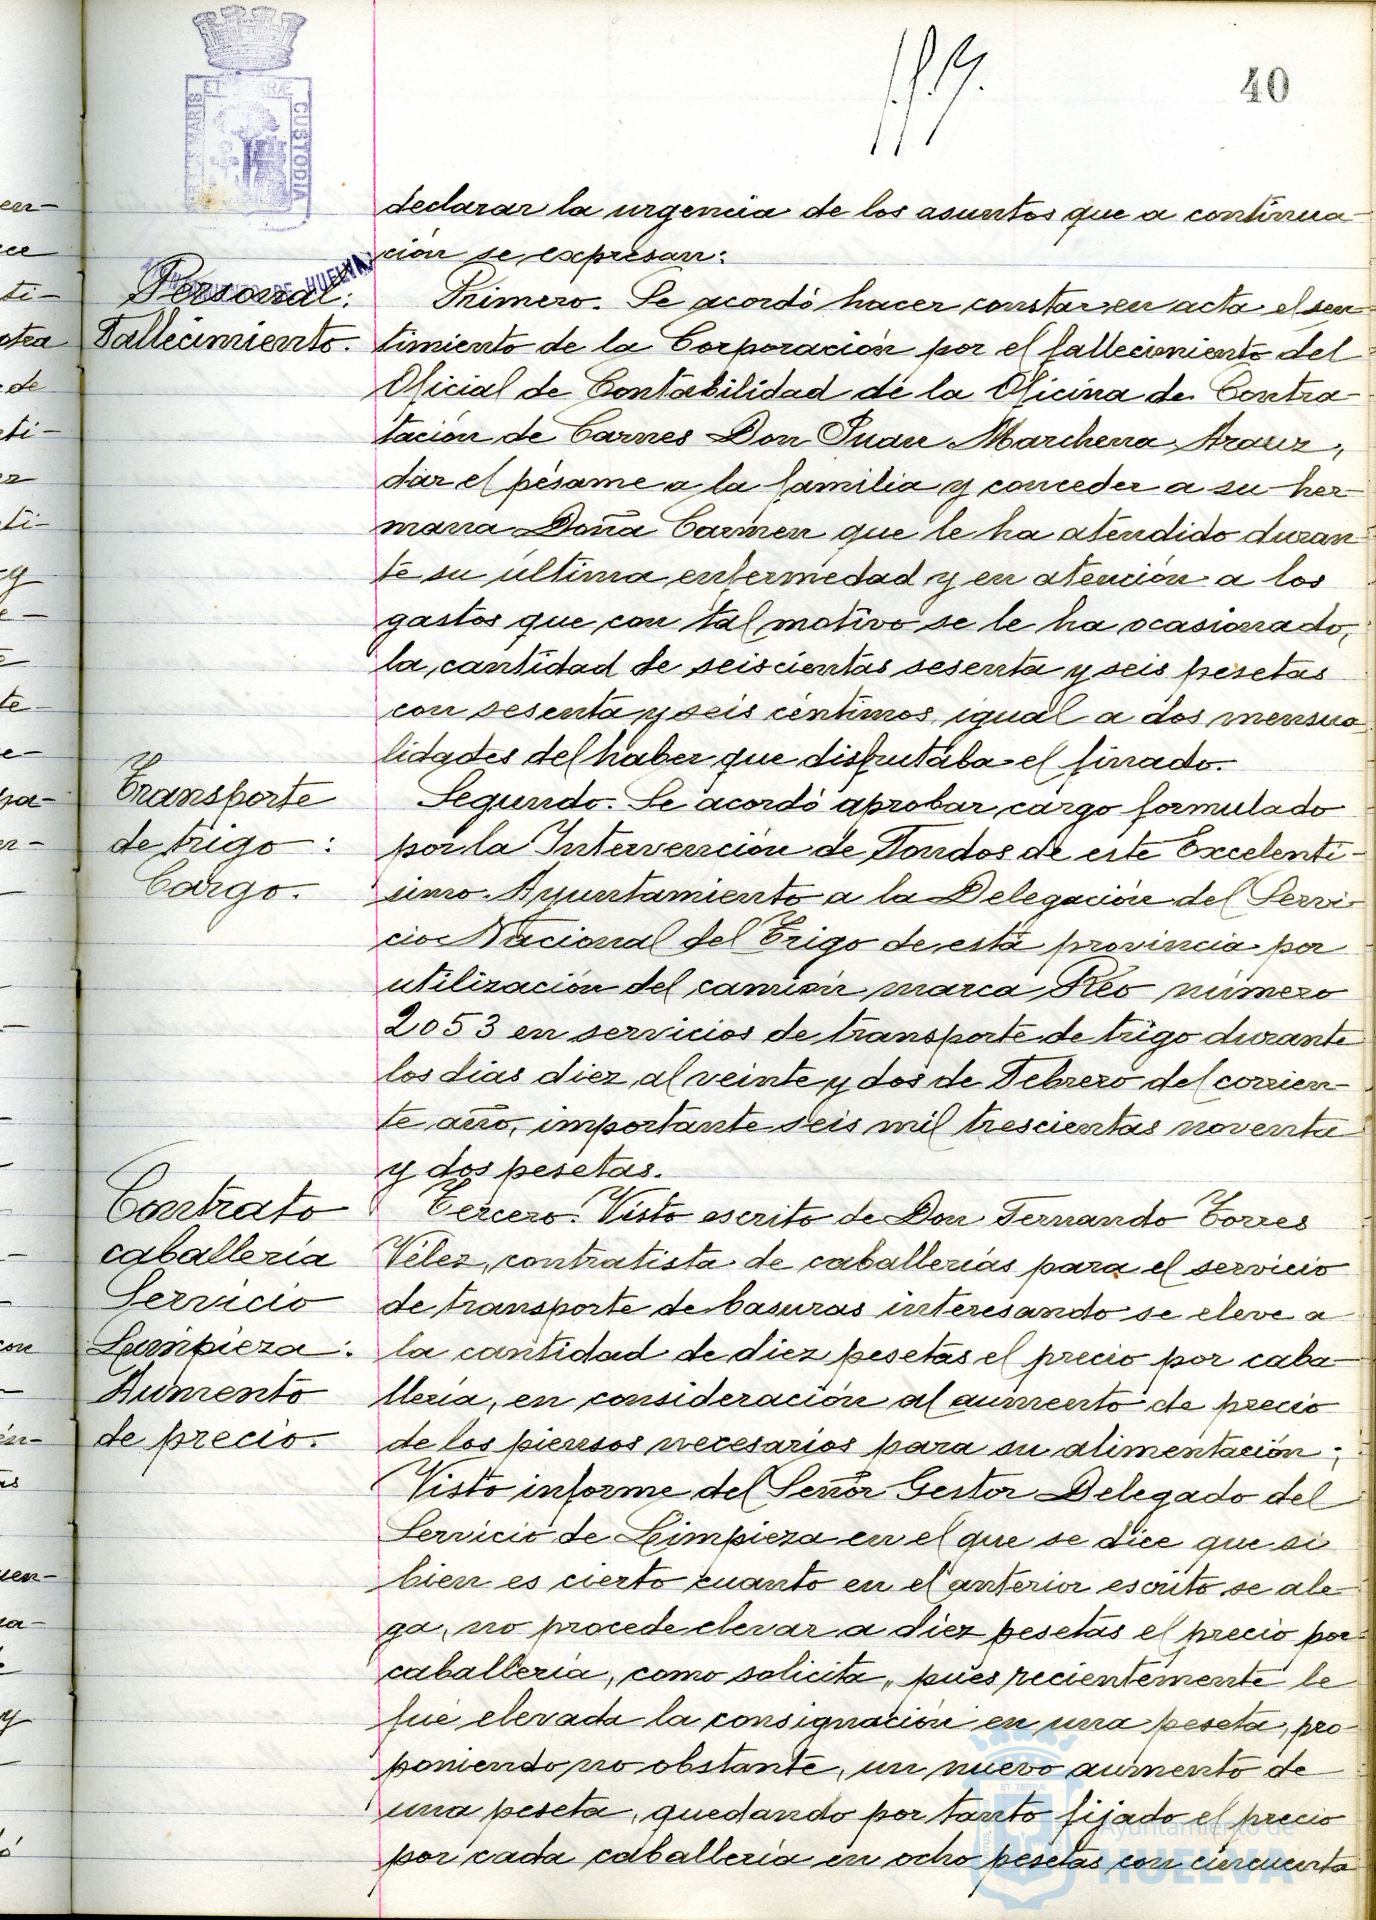 40
declarar la urgencia de los asuntos que a continua-
ción se expresan:
Personal:
Fallecimiento.
Primero. Se acordó hacer constar en acta el sen-
timiento de la Corporación por el fallecimiento del
Oficial de Contabilidad de la Oficina de Contra-
tación de Carnes Don Juan Marchena Arauz,
dar el pésame a la familia y conceder a su her-
mana Doña Carmen que le ha atendido duran-
te su última enfermedad y en atención a los
gastos que con tal motivo se le ha ocasionado,
la cantidad de seiscientas sesenta y seis pesetas
con sesenta y seis céntimos igual a dos mensua-
lidades del haber que disfrutaba el finado.
Transporte
de trigo:
Cargo.
Segundo. Se acordó aprobar cargo formulado
por la Intervención de Fondos de este Excelentí-
simo Ayuntamiento a la Delegación del Servi-
cio Nacional del Trigo de esta provincia por
utilización del camión marca Reo número
2053 en servicios de transporte de trigo durante
los dias diez al veinte y dos de Febrero del corrien-
te año, importante seis mil trescientas noventa
y dos pesetas.
Contrato
caballería
Servicio
Limpieza:
Aumento
de precio.
Tercero. Visto escrito de Don Fernando Torres
Vélez, contratista de caballerías para el servicio
de transporte de basuras interesando se eleve a
la cantidad de diez pesetas el precio por caba-
llería, en consideración al aumento de precio
de los piensos necesarios para su alimentación;
Visto informe del Señor Gestor Delegado del
Servicio de Limpieza en el que se dice que si
bien es cierto cuanto en el anterior escrito se ale-
ga, no procede elevar a diez pesetas el precio por
caballería, como solicita, pues recientemente le
fué elevada la consignación en una peseta, pro-
poniendo no obstante, un nuevo aumento de
una peseta, quedando por tanto fijado el precio
por cada caballería en ocho pesetas con cincuenta
ET TERRÆ CUSTODIA
AYUNTAMIENTO DE HUELVA
Ayuntamiento de
HUELVA